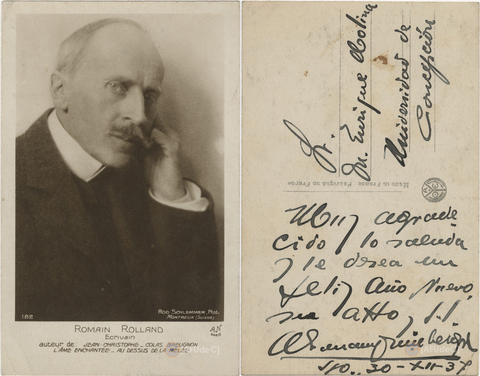 182
ROD SCHLEMMER, PHOT.
MONTREUX (SUISSE)
AN
PARIS
ROMAIN ROLLAND
Ecrivain
auteur de JEAN-CHRISTOPHE _ COLAS BREUGNON
L'AME ENCHANTÉE _ AU DESSUS DE LA MÊLÉE
Sr.
Dn. Enrique Molina
Universidad de
Concepción
Muy agrade
cido lo saluda
y le desea un
feliz Año Nuevo,
su atto, s.s.
Sto. 30-XII-37